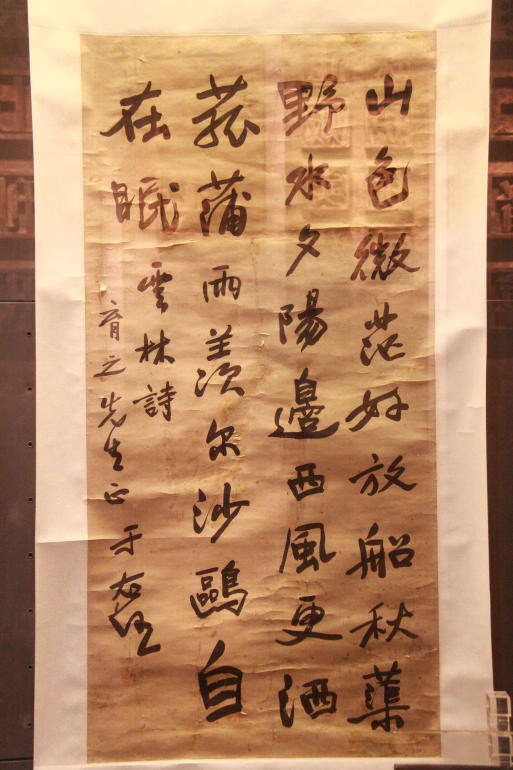 山色微茫好放船秋蕖
野水夕陽邊西風更洒
菰蒲雨羨尔沙鷗自
在眠雲林詩
育之先生正于右任